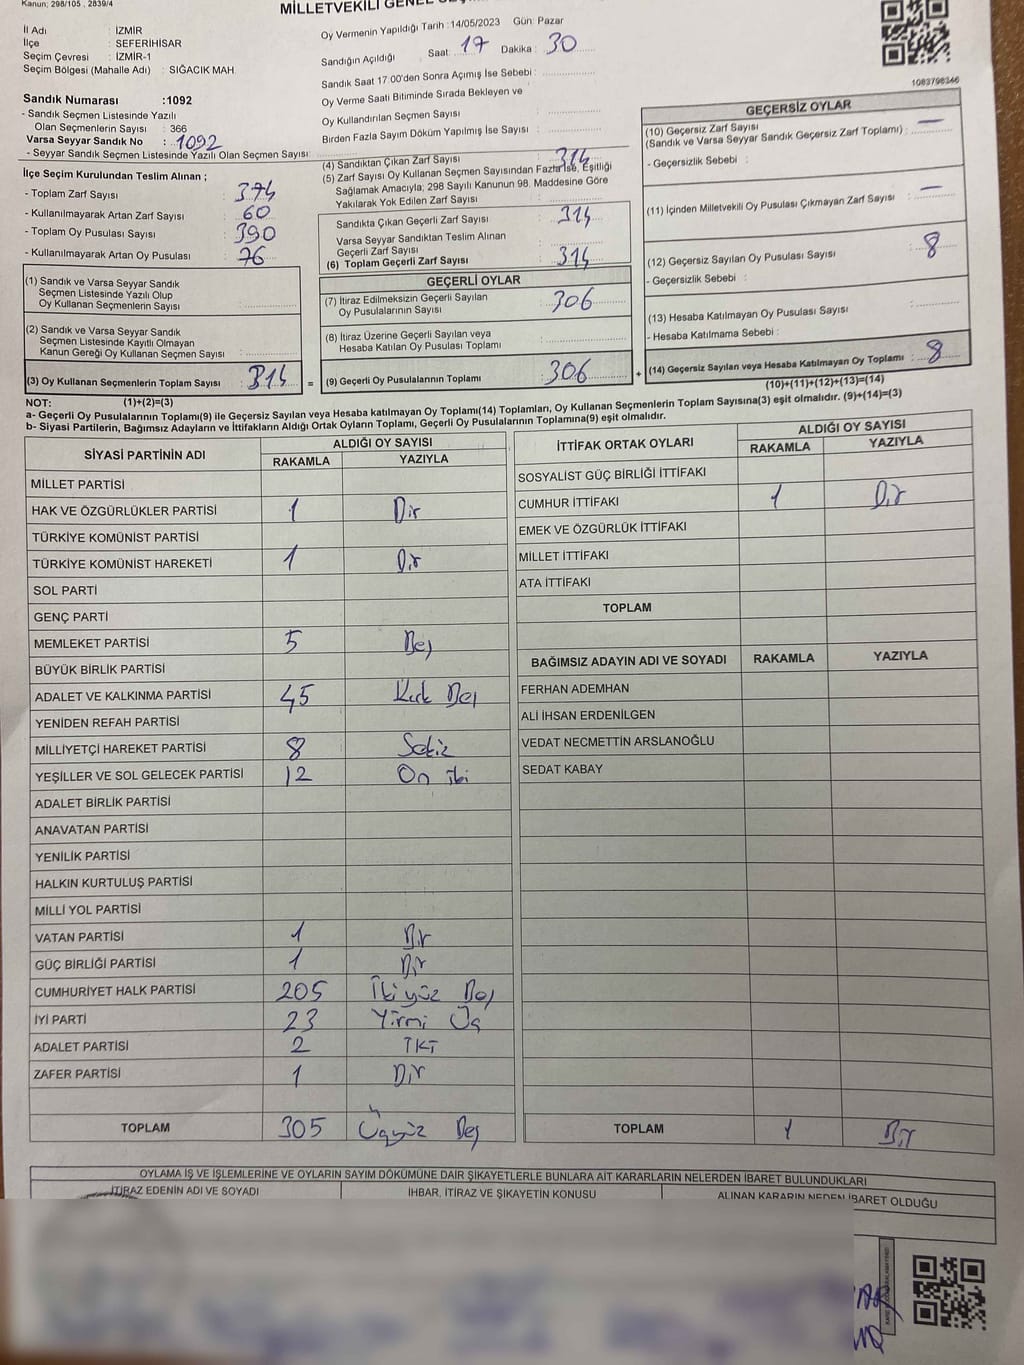 Kanun; 298/105, 2839/4
İl Adı : İZMİR
İlçe : SEFERİHİSAR
Seçim Çevresi : İZMİR-1
Seçim Bölgesi (Mahalle Adı) : SIĞACIK MAH
Sandık Numarası :1092
- Sandık Seçmen Listesinde Yazılı
Olan Seçmenlerin Sayısı : 366
Varsa Seyyar Sandık No : 1092
- Seyyar Sandık Seçmen Listesinde Yazılı Olan Seçmen Sayısı:
İlçe Seçim Kurulundan Teslim Alınan ;
- Toplam Zarf Sayısı : 374
- Kullanılmayarak Artan Zarf Sayısı : 60
- Toplam Oy Pusulası Sayısı : 390
- Kullanılmayarak Artan Oy Pusulası : 76
(1) Sandık ve Varsa Seyyar Sandık
Seçmen Listesinde Yazılı Olup
Oy Kullanan Seçmenlerin Sayısı :
(2) Sandık ve Varsa Seyyar Sandık
Seçmen Listesinde Kayıtlı Olmayan
Kanun Gereği Oy Kullanan Seçmen Sayısı :
(3) Oy Kullanan Seçmenlerin Toplam Sayısı : 314 =
MİLLETVEKİLİ GENEL
Oy Vermenin Yapıldığı Tarih :14/05/2023 Gün: Pazar
Sandığın Açıldığı Saat: 17 Dakika : 30
Sandık Saat 17:00'den Sonra Açımış İse Sebebi :
Oy Verme Saati Bitiminde Sırada Bekleyen ve
Oy Kullandırılan Seçmen Sayısı :
Birden Fazla Sayım Döküm Yapılmış İse Sayısı :
(4) Sandıktan Çıkan Zarf Sayısı : 314
(5) Zarf Sayısı Oy Kullanan Seçmen Sayısından Fazla İse, Eşitliği
Sağlamak Amacıyla, 298 Sayılı Kanunun 98. Maddesine Göre
Yakılarak Yok Edilen Zarf Sayısı :
Sandıkta Çıkan Geçerli Zarf Sayısı : 314
Varsa Seyyar Sandıktan Teslim Alınan
Geçerli Zarf Sayısı :
(6) Toplam Geçerli Zarf Sayısı : 314
GEÇERLİ OYLAR
(7) İtiraz Edilmeksizin Geçerli Sayılan
Oy Pusulalarının Sayısı : 306
(8) İtiraz Üzerine Geçerli Sayılan veya
Hesaba Katılan Oy Pusulası Toplamı :
(9) Geçerli Oy Pusulalarının Toplamı : 306 +
1083798346
GEÇERSİZ OYLAR
(10) Geçersiz Zarf Sayısı
(Sandık ve Varsa Seyyar Sandık Geçersiz Zarf Toplamı) : —
- Geçersizlik Sebebi :
(11) İçinden Milletvekili Oy Pusulası Çıkmayan Zarf Sayısı : —
(12) Geçersiz Sayılan Oy Pusulası Sayısı : 8
- Geçersizlik Sebebi :
(13) Hesaba Katılmayan Oy Pusulası Sayısı :
- Hesaba Katılmama Sebebi :
(14) Geçersiz Sayılan veya Hesaba Katılmayan Oy Toplamı : 8
NOT: (1)+(2)=(3) (10)+(11)+(12)+(13)=(14)
a- Geçerli Oy Pusulalarının Toplamı(9) ile Geçersiz Sayılan veya Hesaba katılmayan Oy Toplamı(14) Toplamları, Oy Kullanan Seçmenlerin Toplam Sayısına(3) eşit olmalıdır. (9)+(14)=(3)
b- Siyasi Partilerin, Bağımsız Adayların ve İttifakların Aldığı Ortak Oyların Toplamı, Geçerli Oy Pusulalarının Toplamına(9) eşit olmalıdır.
SİYASİ PARTİNİN ADI ALDIĞI OY SAYISI
RAKAMLA YAZIYLA
MİLLET PARTİSİ
HAK VE ÖZGÜRLÜKLER PARTİSİ 1 Bir
TÜRKİYE KOMÜNİST PARTİSİ
TÜRKİYE KOMÜNİST HAREKETİ 1 Bir
SOL PARTİ
GENÇ PARTİ
MEMLEKET PARTİSİ 5 Beş
BÜYÜK BİRLİK PARTİSİ
ADALET VE KALKINMA PARTİSİ 45 Kırk Beş
YENİDEN REFAH PARTİSİ
MİLLİYETÇİ HAREKET PARTİSİ 8 Sekiz
YEŞİLLER VE SOL GELECEK PARTİSİ 12 On iki
ADALET BİRLİK PARTİSİ
ANAVATAN PARTİSİ
YENİLİK PARTİSİ
HALKIN KURTULUŞ PARTİSİ
MİLLİ YOL PARTİSİ
VATAN PARTİSİ 1 Bir
GÜÇ BİRLİĞİ PARTİSİ 1 Bir
CUMHURİYET HALK PARTİSİ 205 İkiyüz Beş
İYİ PARTİ 23 Yirmi Üç
ADALET PARTİSİ 2 İKİ
ZAFER PARTİSİ 1 Bir
TOPLAM 305 Üçyüz Beş
İTTİFAK ORTAK OYLARI ALDIĞI OY SAYISI
RAKAMLA YAZIYLA
SOSYALİST GÜÇ BİRLİĞİ İTTİFAKI
CUMHUR İTTİFAKI 1 Bir
EMEK VE ÖZGÜRLÜK İTTİFAKI
MİLLET İTTİFAKI
ATA İTTİFAKI
TOPLAM
BAĞIMSIZ ADAYIN ADI VE SOYADI RAKAMLA YAZIYLA
FERHAN ADEMHAN
ALİ İHSAN ERDENİLGEN
VEDAT NECMETTİN ARSLANOĞLU
SEDAT KABAY
TOPLAM 1 Bir
OYLAMA İŞ VE İŞLEMLERİNE VE OYLARIN SAYIM DÖKÜMÜNE DAİR ŞİKAYETLERLE BUNLARA AİT KARARLARIN NELERDEN İBARET BULUNDUKLARI
İTİRAZ EDENİN ADI VE SOYADI İHBAR, İTİRAZ VE ŞİKAYETİN KONUSU ALINAN KARARIN NEDEN İBARET OLDUĞU